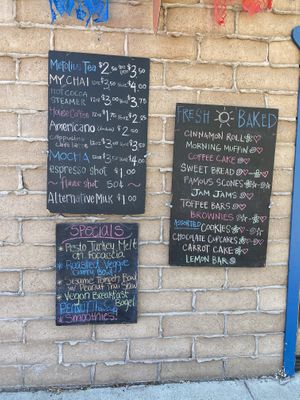 Metolius Tea $2.50 $3.50
MY CHAI 12oz $3.50 16oz $4.00
HOT COCOA
STEAMER 12oz $3.00 16oz $3.75
House Coffee 12oz $1.75 16oz $2.25
Americano (double) $2.50
Cappuccino
Cafe Latte 12oz $3.00
MOCHA $3.50 $4.00
espresso shot $1.00
~ flavor shot 50¢ ~
Alternative Milk $1.00
SPECIALS
* Pesto Turkey Melt
on Focaccia
* Roasted Veggie
Curry Bowl
* Sesame Tempeh Bowl
w/ Peanut Thai Slaw
* Vegan Breakfast
Bagel
Smoothies!
FRESH BAKED
CINNAMON ROLL
MORNING MUFFIN
COFFEE CAKE
SWEET BREAD
FAMOUS SCONES
JAM JAMS
TOFFEE BARS
BROWNIES
ASSORTED COOKIES
CHOCOLATE CUPCAKES
CARROT CAKE
LEMON BAR